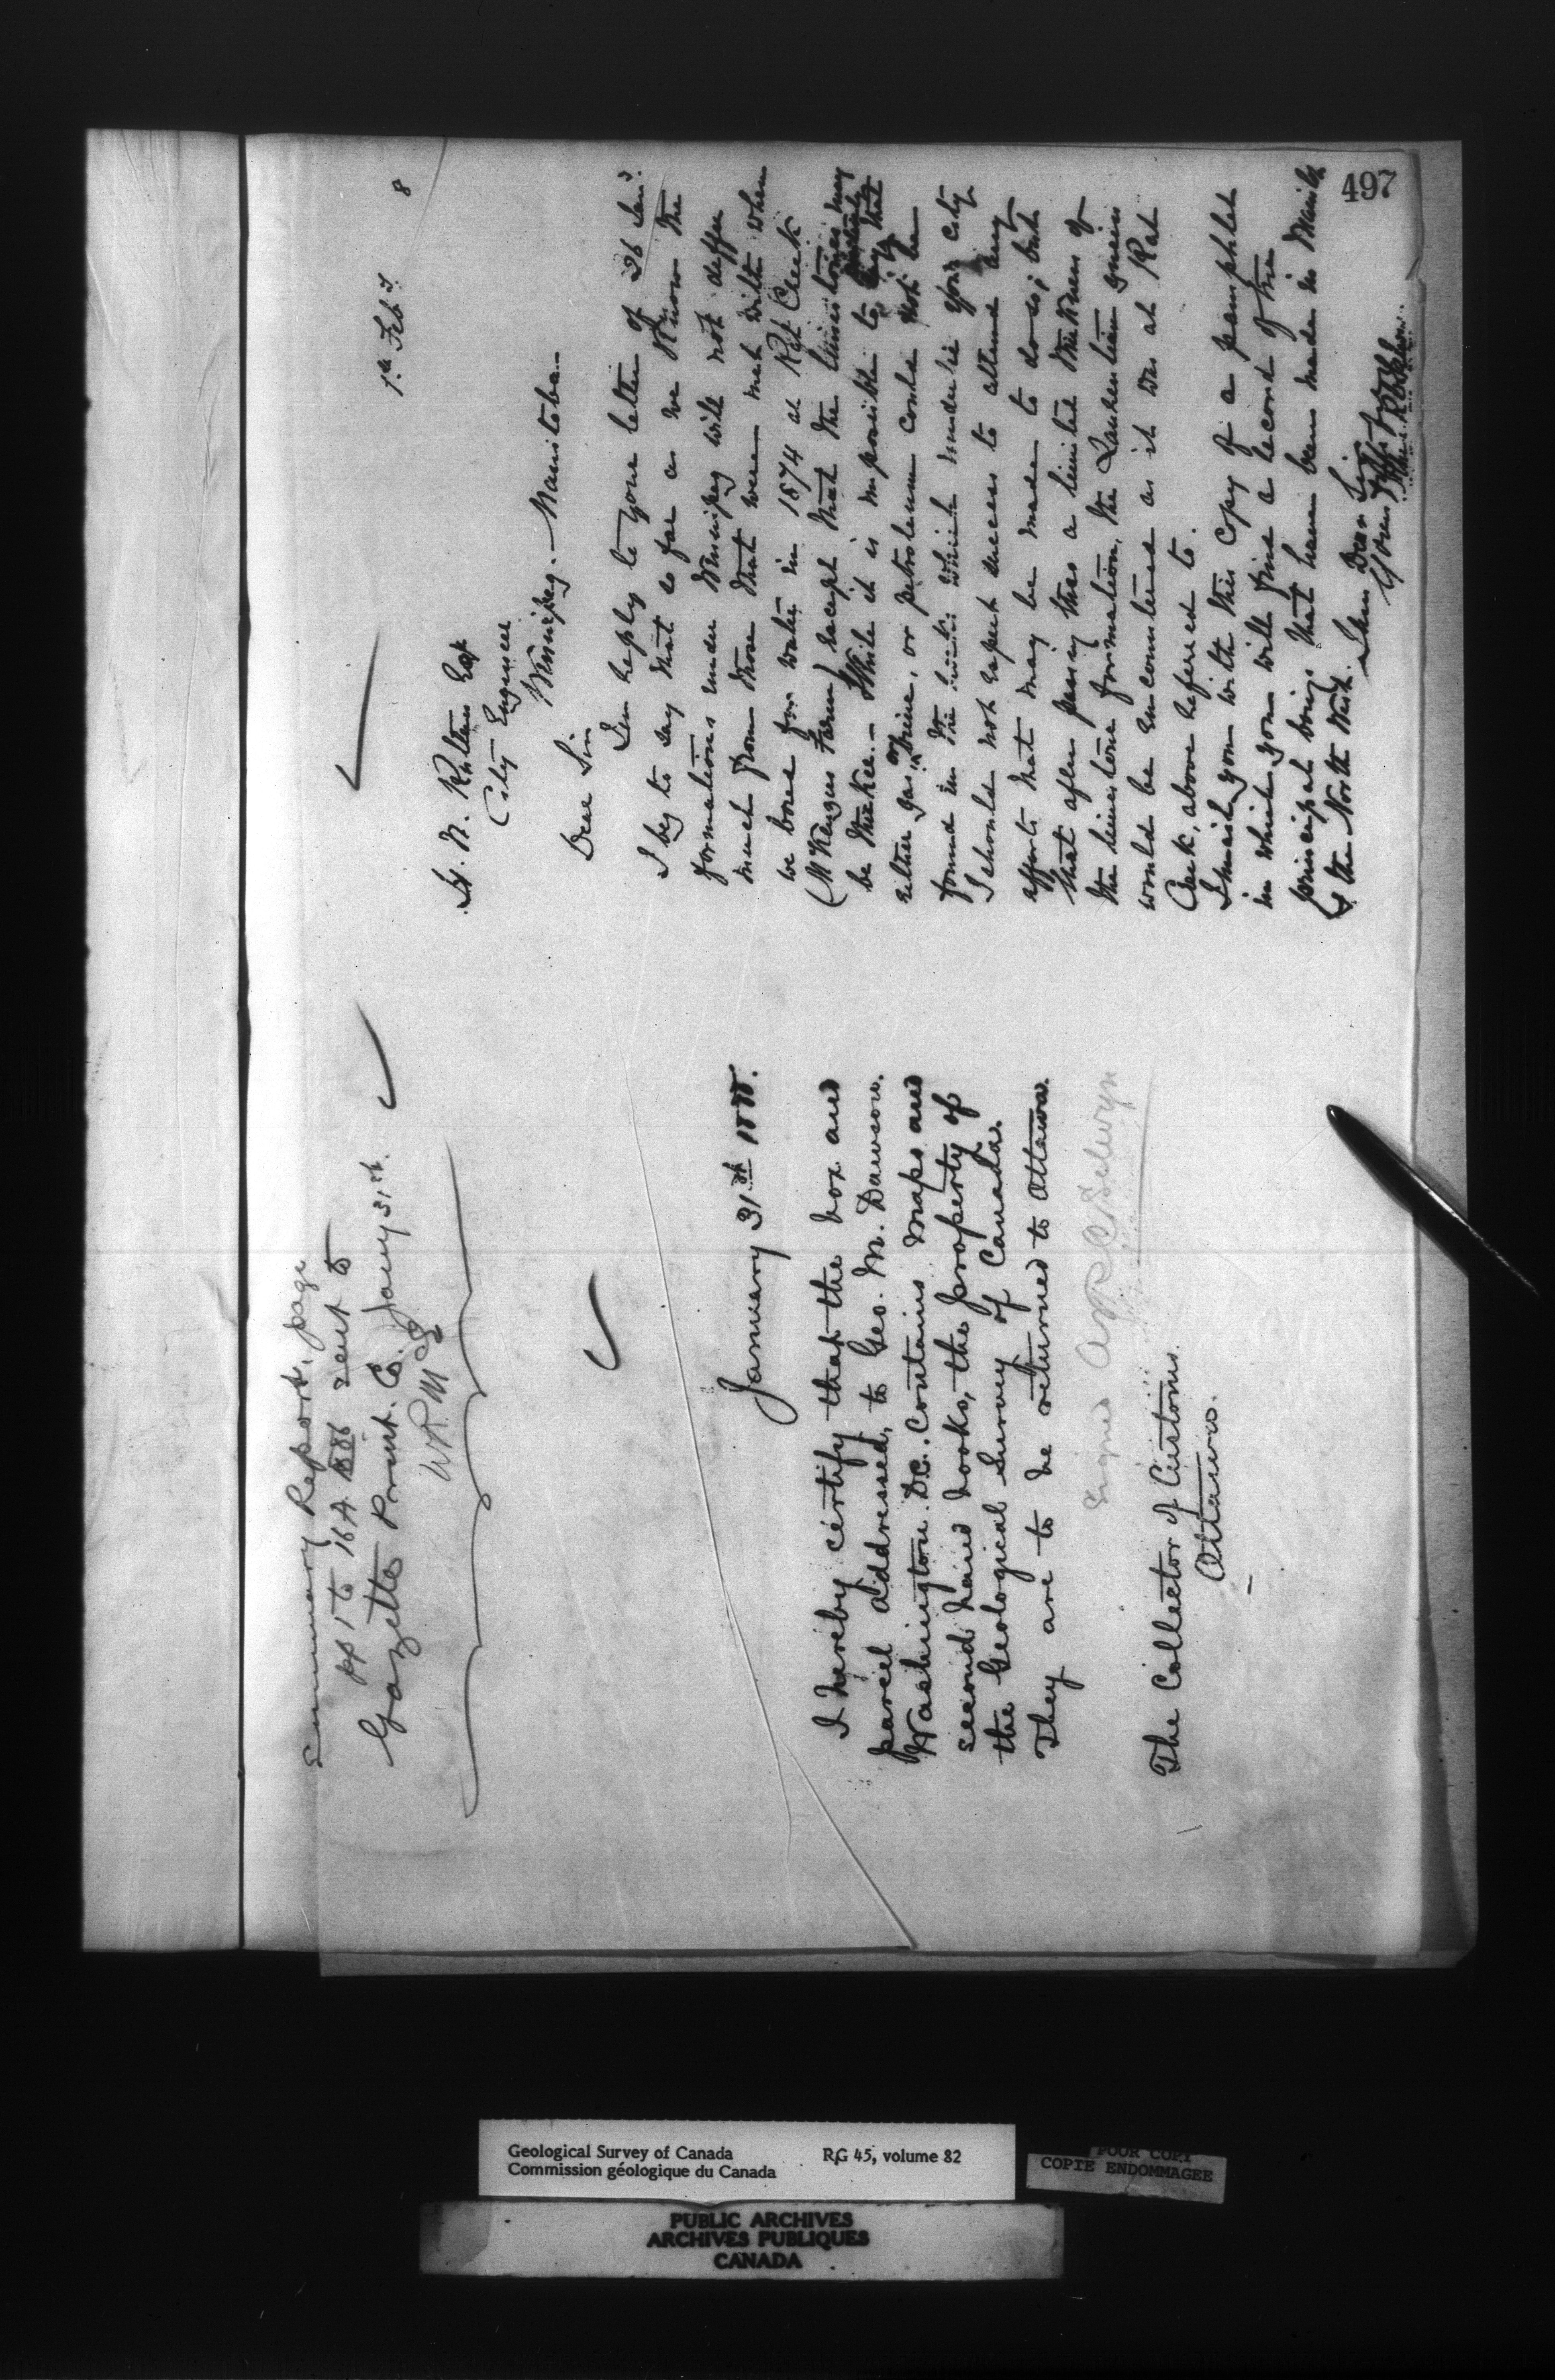 Summary Report, page
pp 1 to 16 A 1886 sent to
Gazette Print. Co. Jany 31st.
January 31st 1888.
I hereby certify that the box and
parcel addressed, to Geo. M. Dawson.
Washington. D.C. Contains maps and
second hand books, the property of
the Geological Survey of Canada.
They are to be returned to Ottawa.
Signed A R C Selwyn
The Collector of Customs.
Ottawa.
1st Feby 8
H. N. Ruttan Esq
City Engineer
Winnipeg. – Manitoba –
Dear Sir
In reply to your letter of 26 Inst.
I beg to say that so far as we know the
formations under Winnipeg will not differ
much from those that were met with when
we bored for water in 1874 at Rat Creek
(McKenzies Farm) except that the limestones may
be thicker. – While it is impossible to say that
either gas or brine, or petroleum could not be
found in the rocks which underlie your city
I should not expect success to attend any
efforts that may be made to do so; but
that after passing thro a limited thickness of
the limestone formation, the Laurentian gneiss
would be encountered as it was at Rat
Creek, above refered to.
I mail you with this copy of a pamphlet
in which you will find a record of the
principal borings that have been made in Manitb
& the North West. I am Dear Sir
Yours
497
Geological Survey of Canada RG 45, volume 82
Commission géologique du Canada
POOR COPY
COPIE ENDOMMAGEE
PUBLIC ARCHIVES
ARCHIVES PUBLIQUES
CANADA